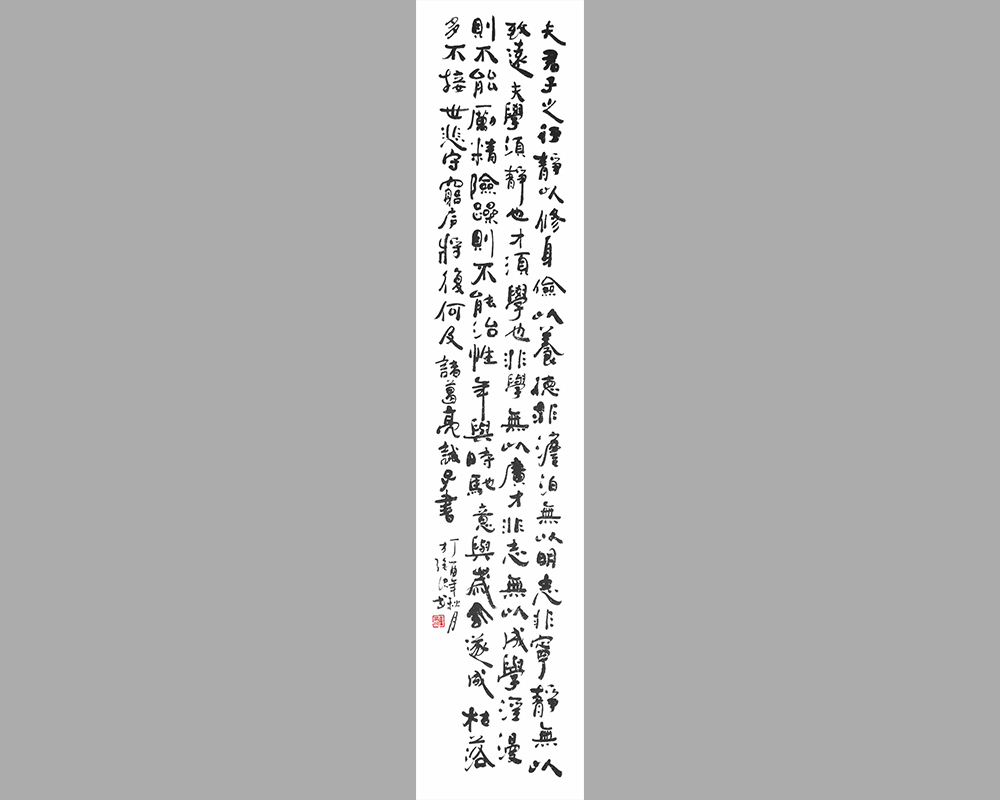 夫君子之行靜以修身儉以養德非澹泊無以明志非寧靜無以
致遠夫學須靜也才須學也非學無以廣才非志無以成學淫漫
則不能勵精險躁則不能治性年與時馳意與歲去遂成枯落
多不接世悲守窮廬將復何及諸葛亮誡子書
丁酉年秋月
書